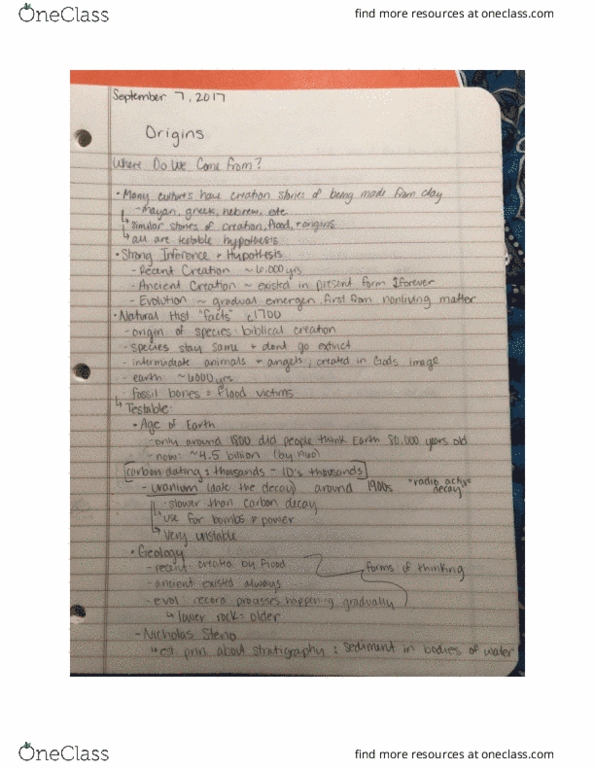 OneClass
find more resources at oneclass.com
September 7, 2017
Origins
Where Do We Come From?
• Many cultures have creation stories of being made from clay
- mayan, greek, hebrew, etc.
↳ similar stories of creation, flood, + origins
↳ all are testable hypothesis
• Strong Inference + Hypothesis
- Recent Creation ~ 6,000 yrs
- Ancient Creation ~ existed in present form forever
- Evolution ~ gradual emergen. first from nonliving matter
• Natural Hist "facts" c1700
- origin of species: biblical creation
- species stay same + dont go extinct
- intermediate animals + angels, created in Gods image
- earth: ~6000 yrs
- fossil bones = flood victims
↳ Testable:
• Age of Earth
- only around 1800 did people think Earth 80,000 years old
- now: ~4.5 billion
carbon dating: thousands - 10's thousands
- uranium (date the decay) around 1900s "radio active decay"
- slower than carbon decay
↳ use for bombs + power
↳ very unstable
• Geology
- recent created by flood
- ancient existed always
- evol. record processes happening gradually
forms of thinking
↳ lower rock = older
- Nicholas Steno
↳ est. prin. about stratigraphy: sediment in bodies of water
OneClass
find more resources at oneclass.com